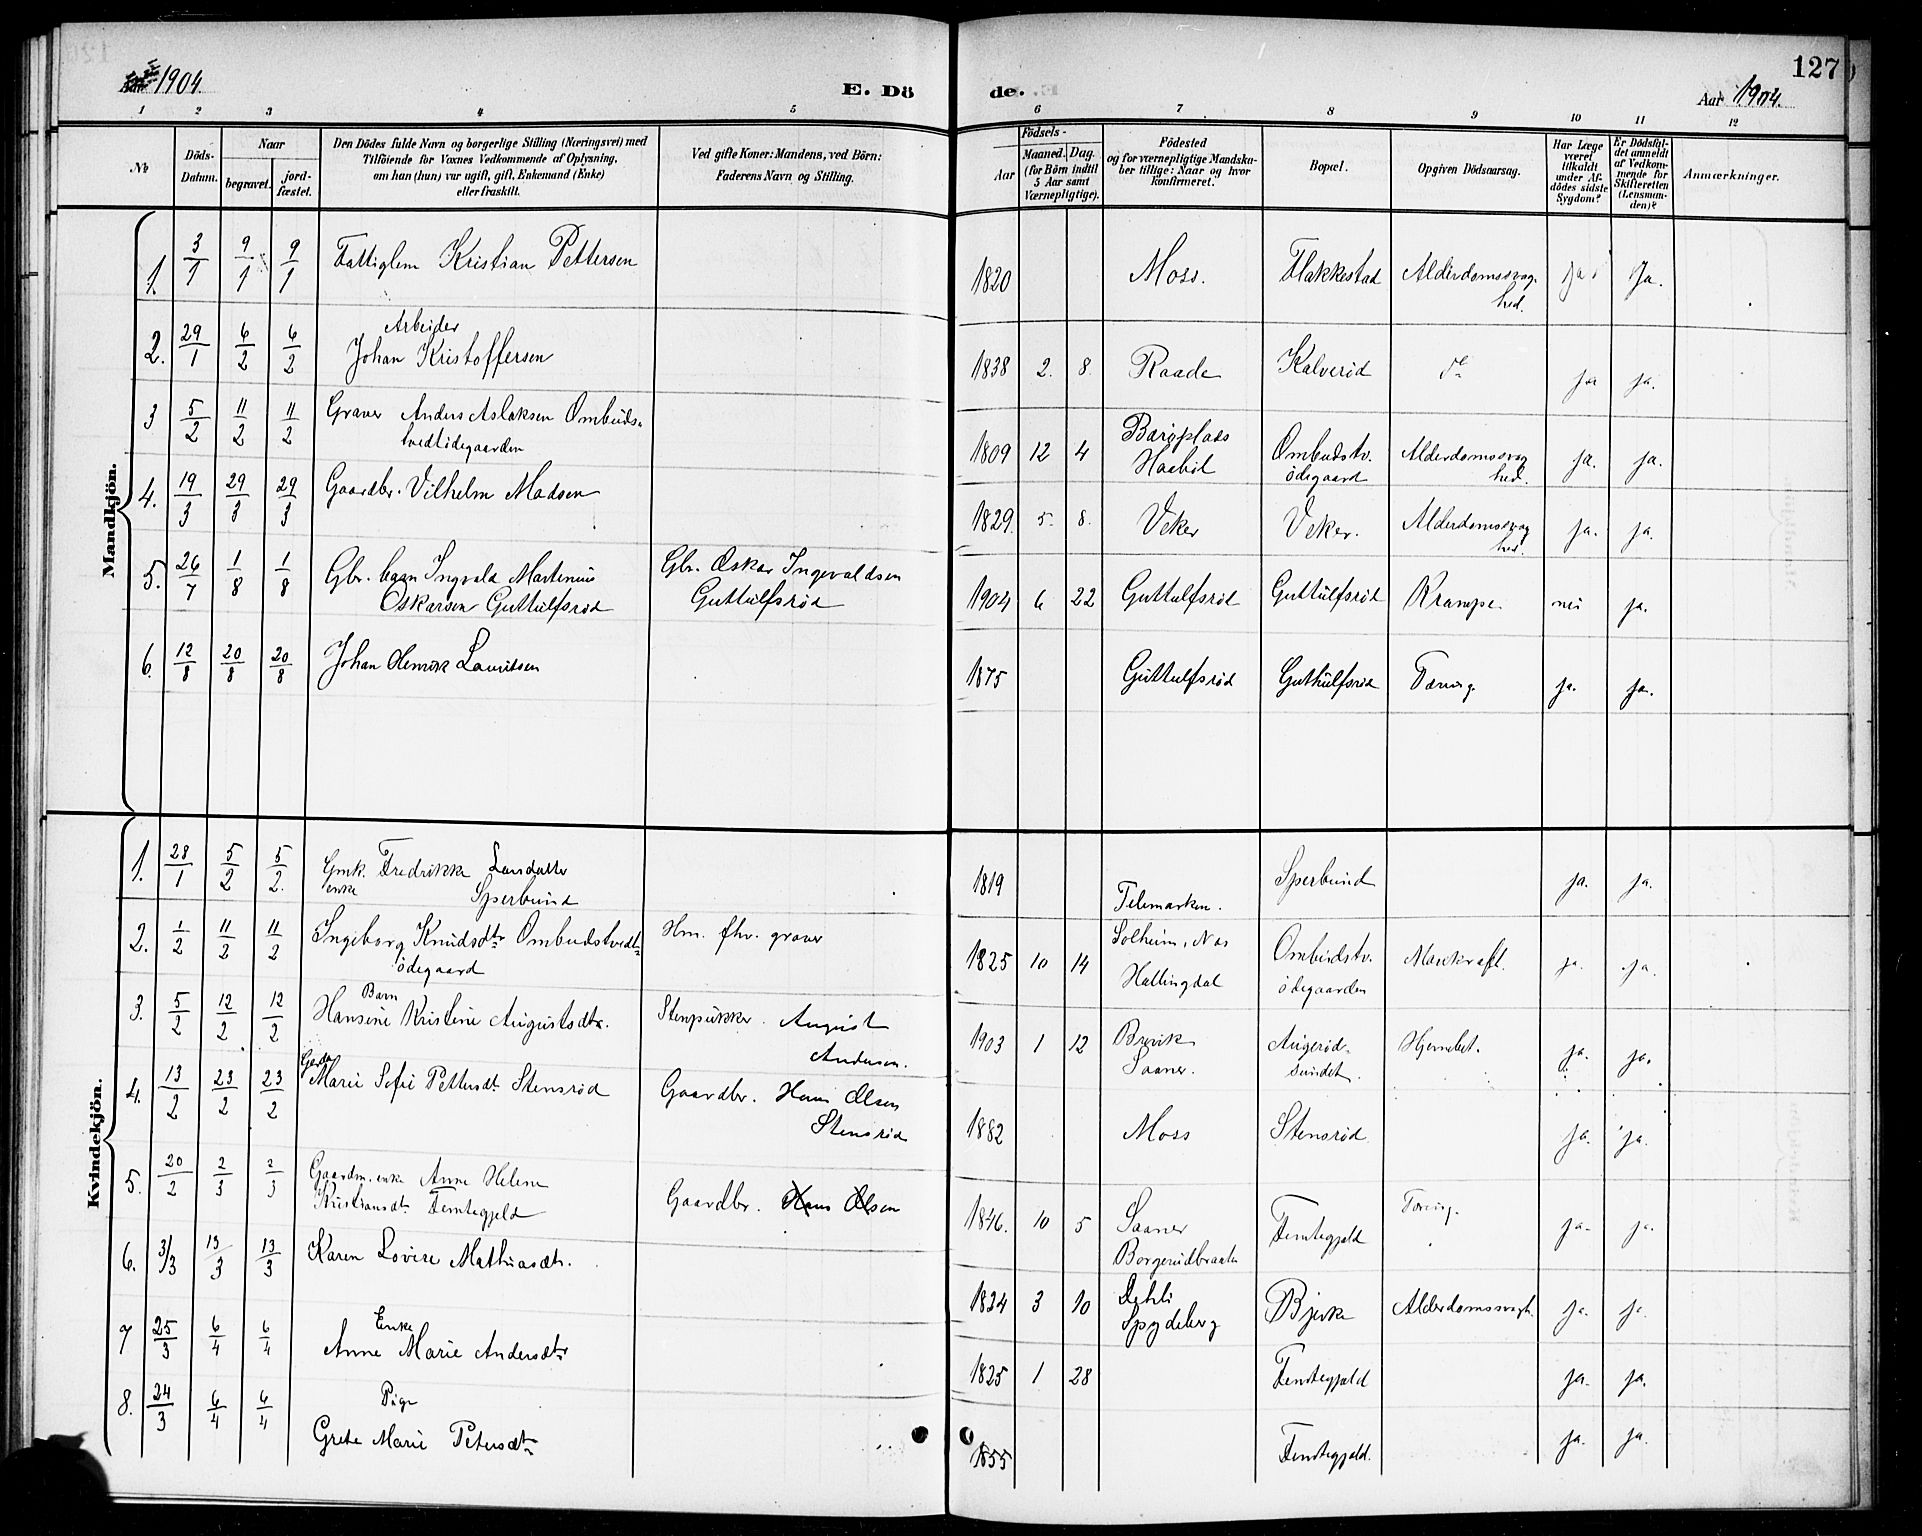 1904.
E. Dö
de.
127
Aar 1904.
1 2 3 4 5 6 7 8 9 10 11 12
No
Döds-
Datum.
Naar
begravet.
jord-
fæstet.
Den Dödes fulde Navn og borgerlige Stilling (Næringsvei) med
Tilföiende for Voxnes Vedkommende af Oplysning,
om han (hun) var ugift, gift, Enkemand (Enke)
eller fraskilt.
Ved gifte Koner: Mandens, ved Börn:
Faderens Navn og Stilling.
Födsels-
Aar
Maaned. Dag.
(for Børn indtil
5 Aar samt
Værnepligtige).
Födested
og for værnepligtige Mandska-
ber tillige: Naar og hvor
konfirmeret.
Bopæl.
Opgiven Dödsaarsag.
Har Læge
været
tilkaldt
under Af-
dödes sidste
Sygdom?
Er Dödsfal-
det anmeldt
af Vedkom-
mende for
Skifteretten
(Lensman-
den)?
Anmærkninger.
Mandkjön.
1. 3/1 9/1 9/1 Fattiglem Kristian Pettersen 1820 Moss. Flakkestad Alderdomssvag-
hed. Ja Ja.
2. 29/1 6/2 6/2 Arbeider
Johan Kristoffersen 1838 2. 8. Raade Kalverød ja ja.
3 5/2 11/2 11/2 Graver Anders Aslaksen Ombuds-
tvedtødegaarden 1809 12 4 Haabøl Ombudstv.
ødegaard Alderdomssvag
hed. ja. ja.
4. 19/3 29/3 29/3 Gaardbr. Vilhelm Madsen 1829. 5. 8. Veker Veker. Alderdomssvag
hed. ja. ja.
5. 26/7 1/8 1/8 Gbr. barn Ingvald Martenius
Oskarsen Guttulfsrød Gbr. Oskar Ingevaldsen
Guttulfsrød 1904 6 22 Guttulfsrød Guttulfsrød Krampe. nei ja.
6. 12/8 20/8 20/8 Johan Henrik Lauritsen 1875 Guttulfsrød Guthulfsrød Tæring. ja. ja.
Kvindekjön.
1. 28/1 5/2 5/2. Gmk. Fredrikke
enke Sperbund 1819 Telemarken. Sperbund ja. ja.
2. 1/2 11/2 11/2 Ingeborg Knudsdtr Ombudstvedt-
ødegaard Hm. fhv. graver 1825 10 14 Solheim, Nas
Hallingdal Ombudstv.
ødegaarden ja. ja.
3. 5/2 12/2 12/2 Barn
Hansine Kristine Augustsdtr. Stenpukker August
Andersen. 1903 1 12 Brevik
Saaner. Augerød-
sundet. Hjernebet. ja. ja.
4. 13/2 23/2 23/2 Gerda
Marie Sofie Pettersdt. Stensrød Gaardbr. Hans Olsen
Stensrød 1882 Moss Stensrød ja. ja.
5. 20/2 2/3 2/3 Gaardm. enke Anne Helene
Kristiansdt. Femtegjeld Gaardbr. Hans Olsen 1846. 10 5 Saaner
Borgerudbraaten Femtegjeld Tæring. ja. ja.
6. 3/3 13/3 13/3 Karen Lovise Mathiasdtr. 1824 3 10 Dehli
Spydeberg Bjerke Alderdomssvagh. ja. ja.
7 25/3 6/4 6/4 Enke
Anne Marie Andersdtr 1825 1 28 Femtegjeld ja. ja.
8. 24/3 6/4 6/4 Pige
Grete Marie Petersdtr 1855 Femtegjeld. ja. ja.